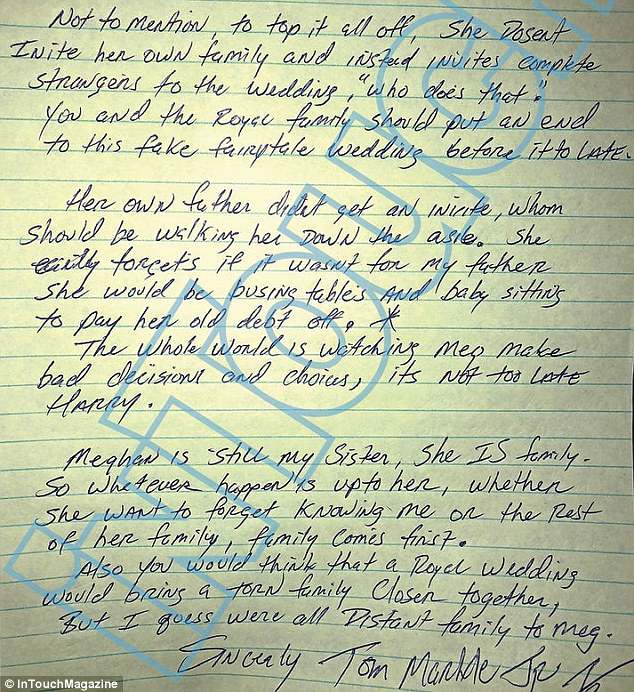 Not to mention, to top it all off She Dosent
Inite her own family and instead invites complete
strangers to the wedding, "who does that."
You and the Royal family should put an end
to this fake fairytale wedding before it to LATE.
Her own father didnt get an invite, whom
should be walking her Down the asle. She
forgets if it wasnt for my father
She would be busing tables AND baby sitting
to pay her old debt off. *
The whole world is watching Meg make
bad decisions and choices, its NOT too LATE
HARRY.
Meghan is still my Sister, She IS family.
So whatever happen is up to her, whether
she WANT to forget Knowing me or the Rest
of her family, family comes first.
Also you would think that a Royal wedding
would bring a TORN family Closer together,
But I guess were all Distant family to Meg.
Sincerly Tom Markle Jr.
INTOUCH
© InTouchMagazine